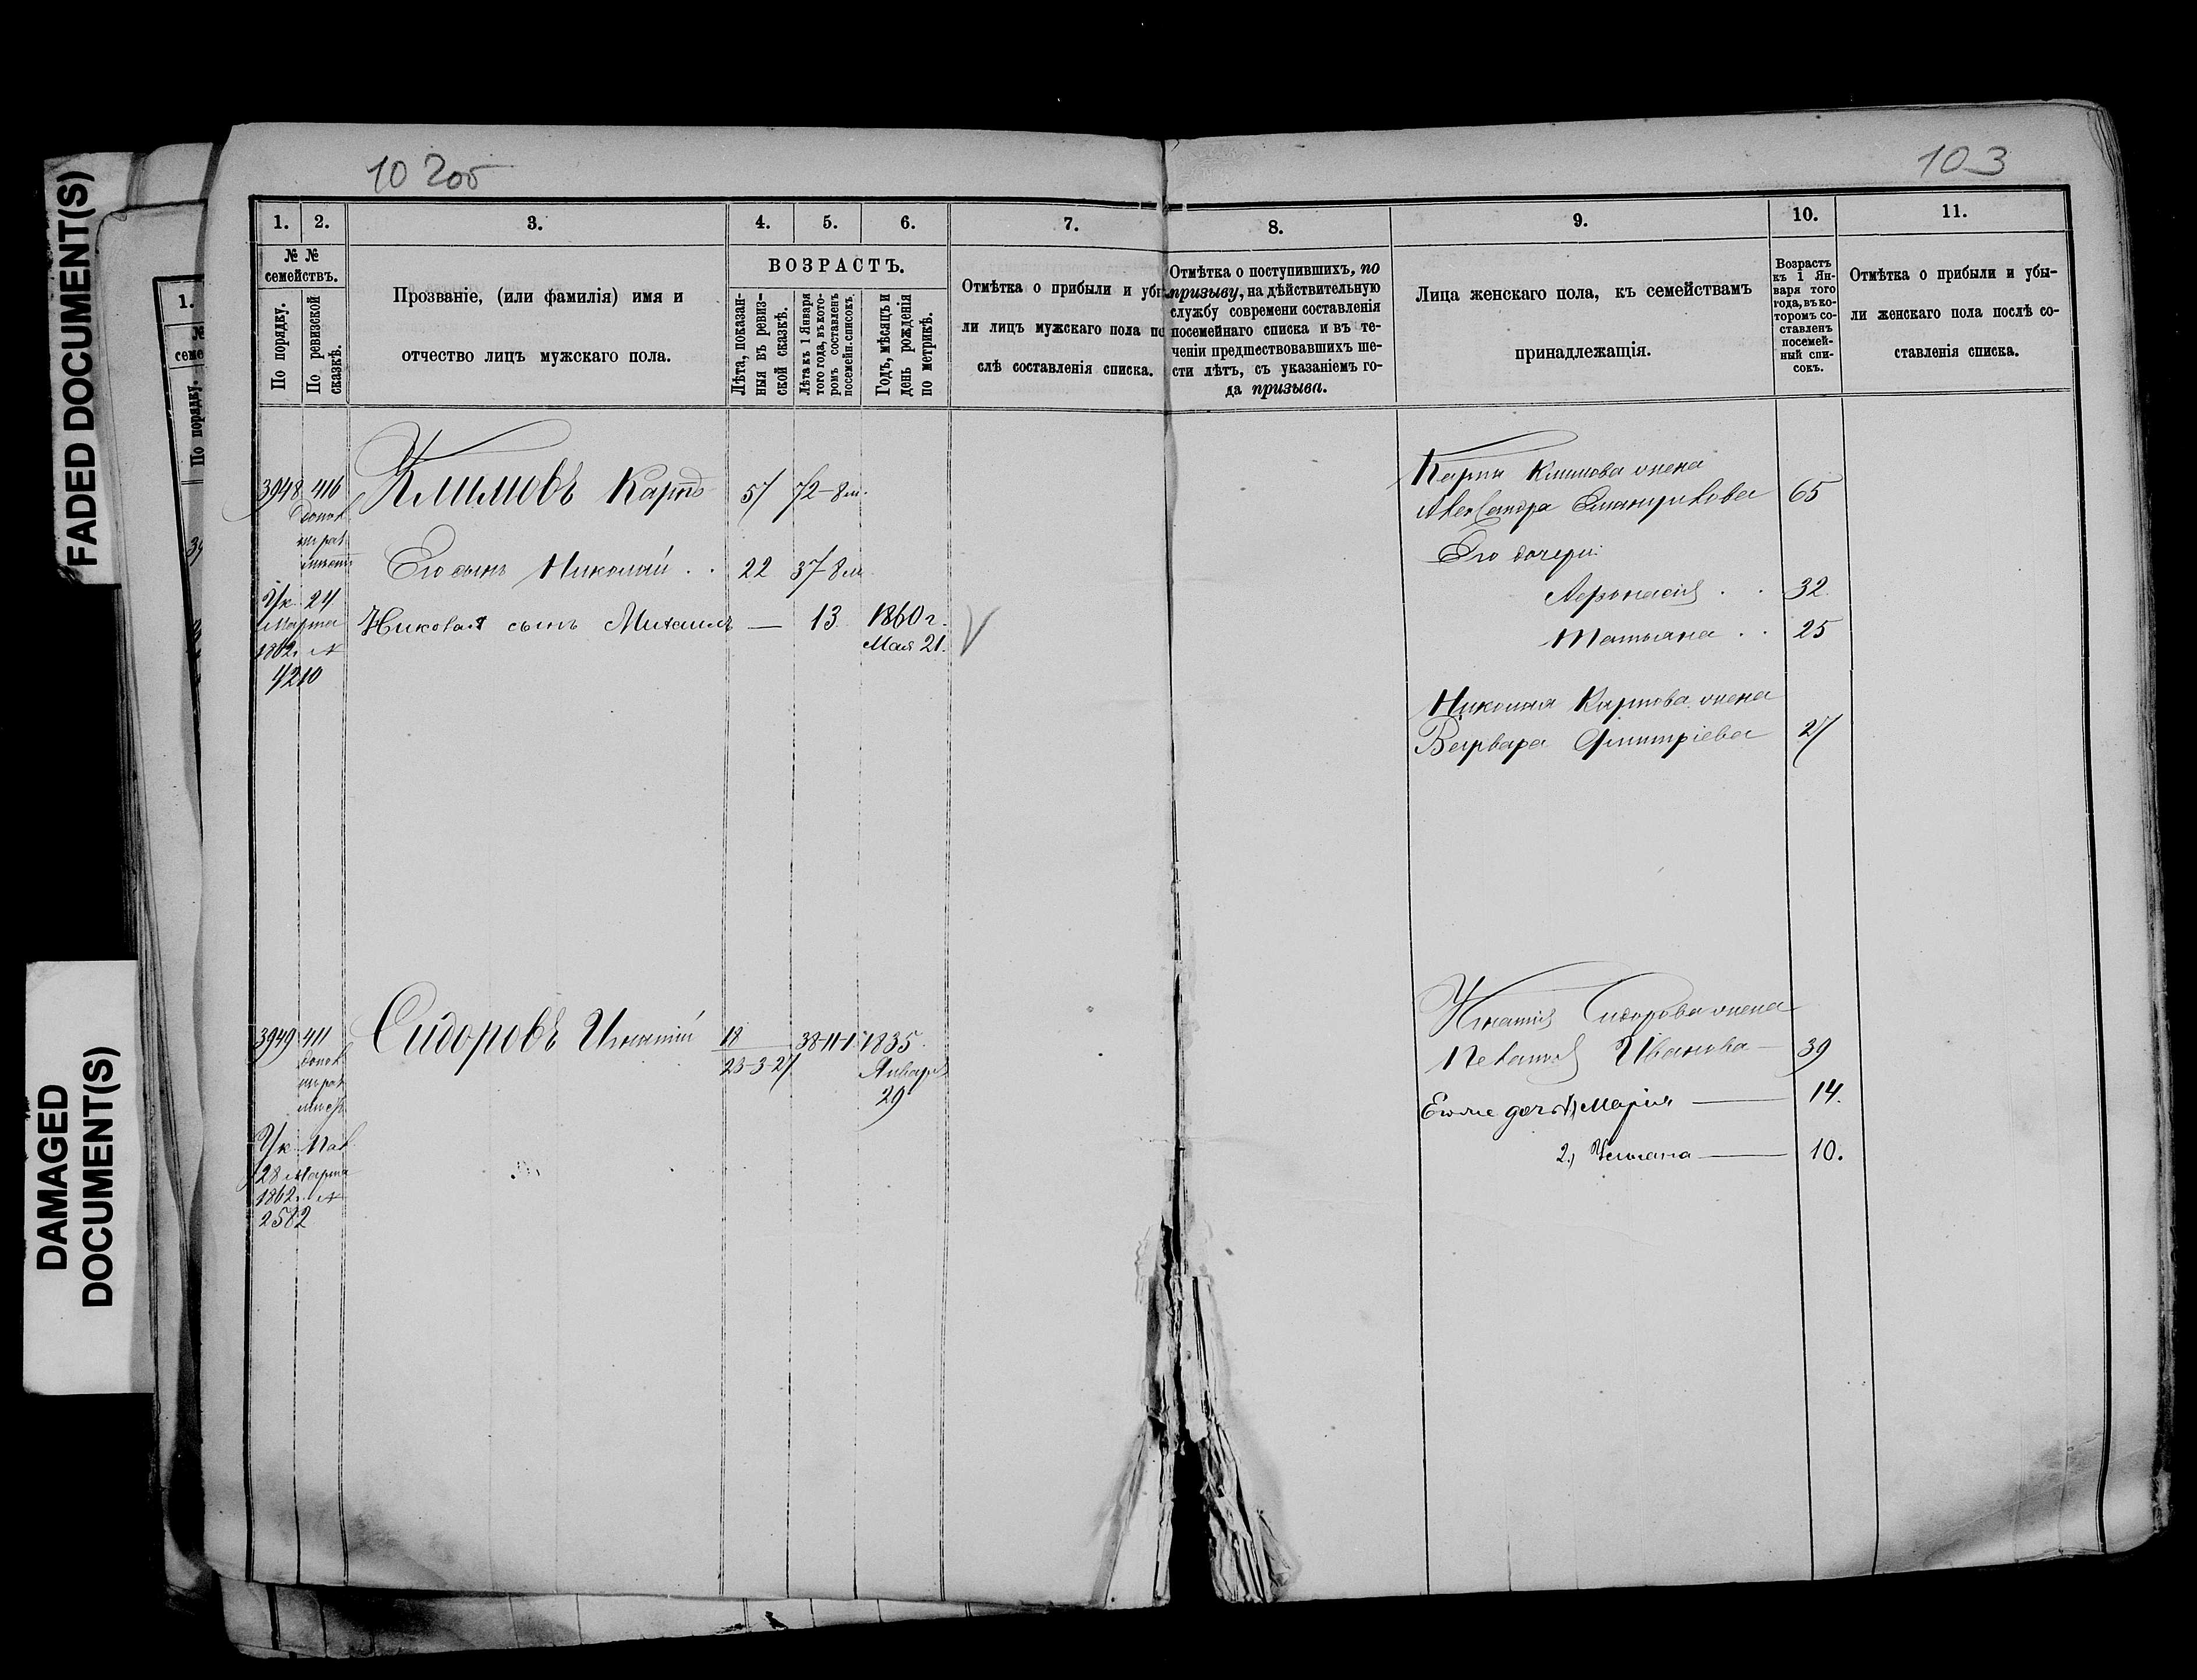 FADED DOCUMENT(S)
DAMAGED
DOCUMENT(S)
10 2об
103
1.
2.
3.
4.
5.
6.
7.
8.
9.
10.
11.
№ №
семействъ.
По порядку.
По ревизской
сказкѣ.
Прозваніе, (или фамилія) имя и
отчество лицъ мужскаго пола.
ВОЗРАСТЪ.
Лѣта, показан-
ныя въ ревиз-
ской сказкѣ.
Лѣта къ 1 Января
того года, въ кото-
ромъ составленъ
посемейн. списокъ.
Годъ, мѣсяцъ и
день рожденія
по метрикѣ.
Отмѣтка о прибыли и убы-
ли лицъ мужскаго пола по
слѣ составленія списка.
Отмѣтка о поступившихъ, по
призыву, на дѣйствительную
службу современи составленія
посемейнаго списка и въ те-
ченіи предшествовавшихъ ше-
сти лѣтъ, съ указаніемъ го-
да призыва.
Лица женскаго пола, къ семействамъ
принадлежащія.
Возрастъ
къ 1 Ян-
варя того
года, въ ко-
торомъ со-
ставленъ
посемей-
ный спи-
сокъ.
Отмѣтка о прибыли и убы-
ли женскаго пола послѣ со-
ставленія списка.
3948 416 Климовъ Карпъ 57 72-8м.
Его сынъ Николай . . 22 37-8м.
Ук. 24
Марта
1862г. №
4210
Николая сынъ Михаилъ — 13 1860 г.
Мая 21. V
Карпа Климова жена
Александра 65
Его дочери:
32
Татьяна . . 25
Николая Карпова жена
Варвара Дмитріева 27
3949 411 Сидоровъ Игнатій 18 38-11-1 1835
23-3-27 Января
29
Ук. Пал.
28 Марта
1862г. №
2582
Игнатія Сидорова жена
Пелагея Иванова — 39
Ею же доч. 1) Марія — 14.
2) Ульяна — 10.